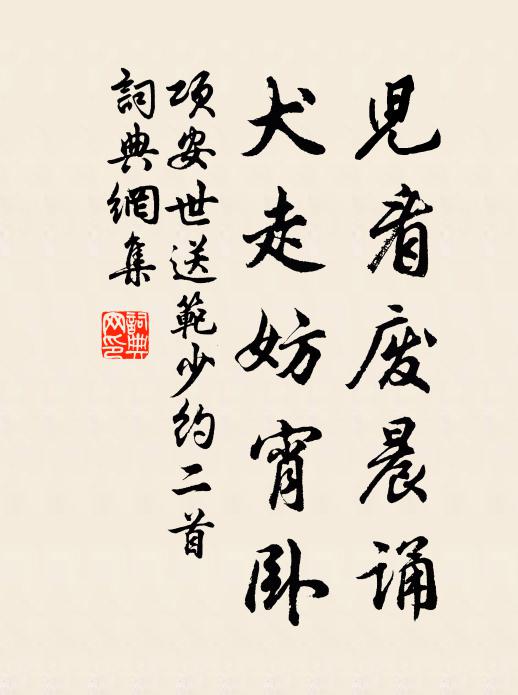 児看废晨诵
犬走妨宵卧
项安世送範少约二首
詞典網集
詞典網印